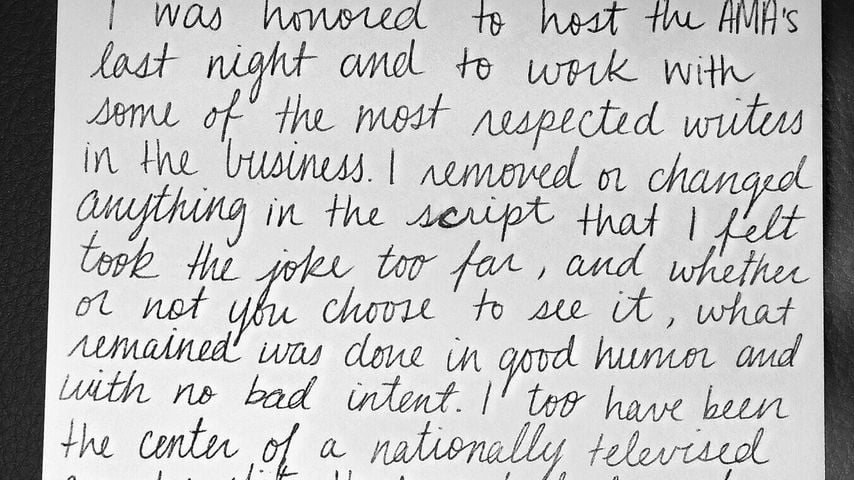 I was honored to host the AMA's
last night and to work with
some of the most respected writers
in the business. I removed or changed
anything in the script that I felt
took the joke too far, and whether
or not you choose to see it, what
remained was done in good humor and
with no bad intent. I too have been
the center of a nationally televised